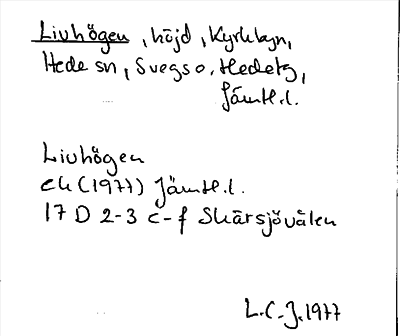 Livhögen, höjd, Kyrkbyn,
Hede sn, Svegs o. Hedetg,
Jämtl.l.
Livhögen
ek (1977) Jämtl.l.
17 D 2-3 c-f Skärsjövålen
L.C.J. 1977